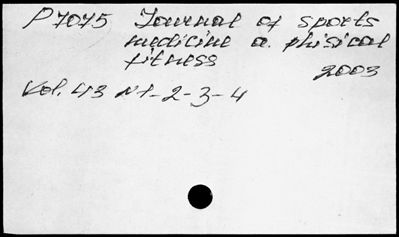 P7075 Journal of sports
medicine a. phisical
fitness
2003
Vol. 43 N1-2-3-4